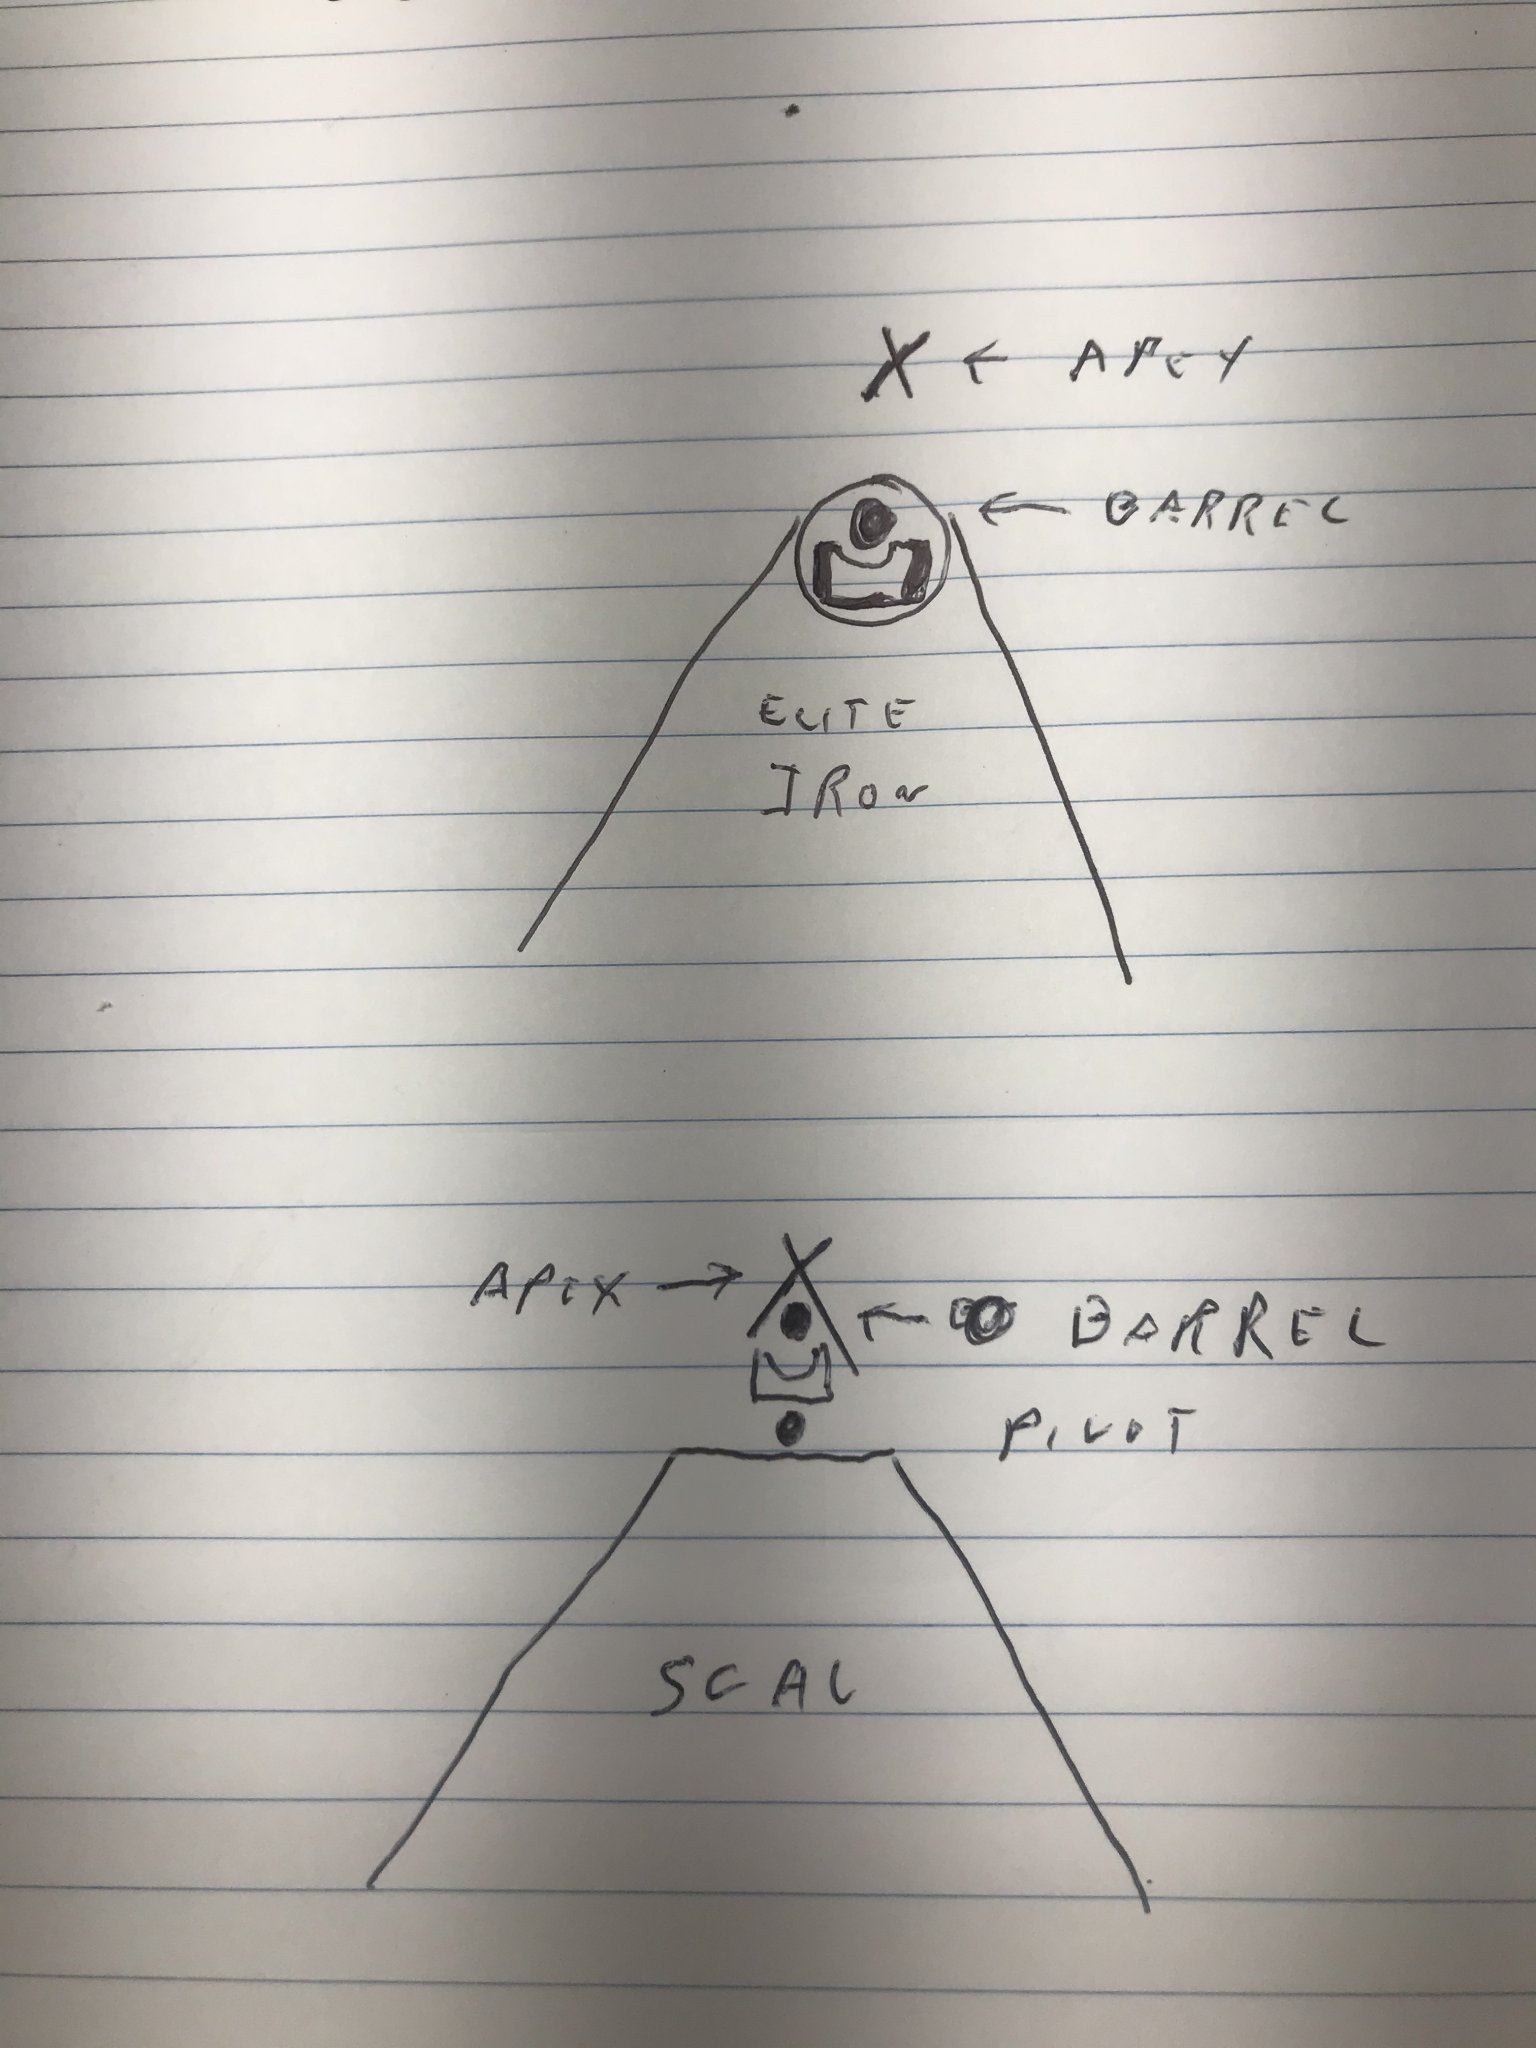 X ← APEX
← BARREL
ELITE
IRON
APEX → X
← BARREL
PIVOT